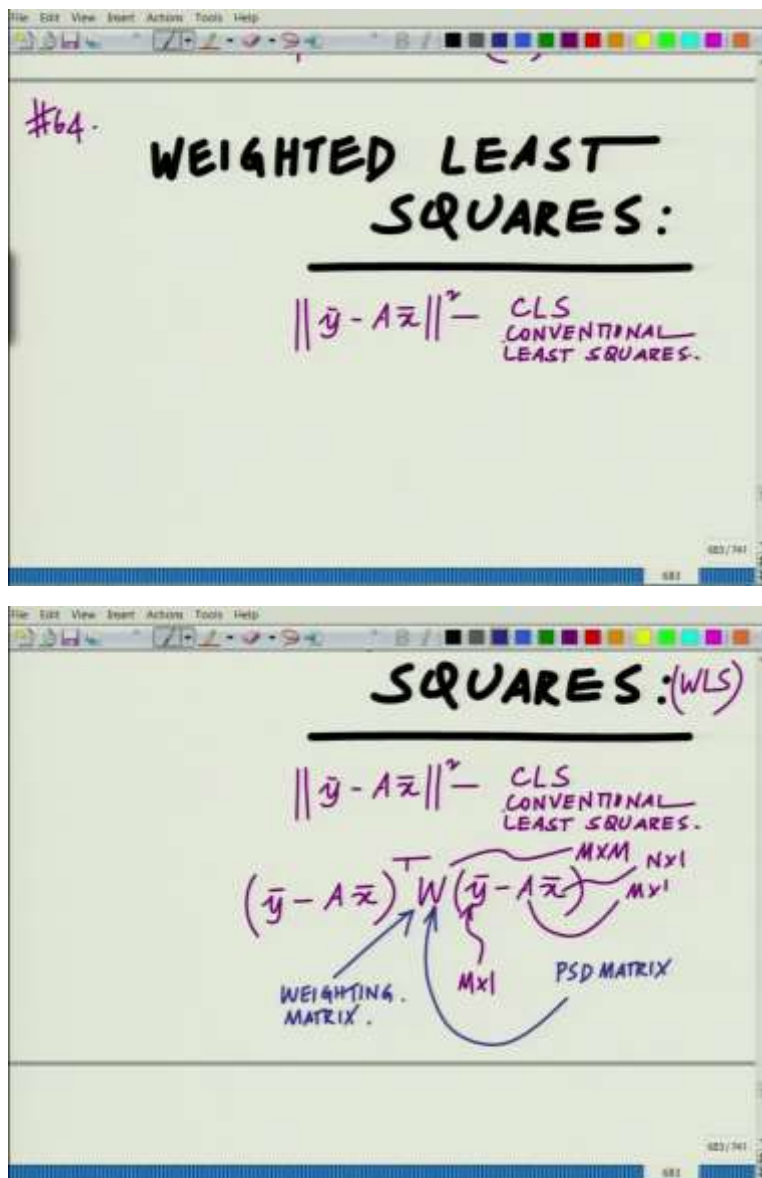 File Edit View Insert Actions Tools Help
#64.
WEIGHTED LEAST
SQUARES:
||ȳ - Ax̄||² — CLS
CONVENTIONAL
LEAST SQUARES.
683/741
683
File Edit View Insert Actions Tools Help
SQUARES: (WLS)
||ȳ - Ax̄||² — CLS
CONVENTIONAL
LEAST SQUARES.
MXM NX1
(ȳ - Ax̄)ᵀ W (ȳ - Ax̄) MX1
WEIGHTING.
MATRIX.
MX1
PSD MATRIX
683/741
683